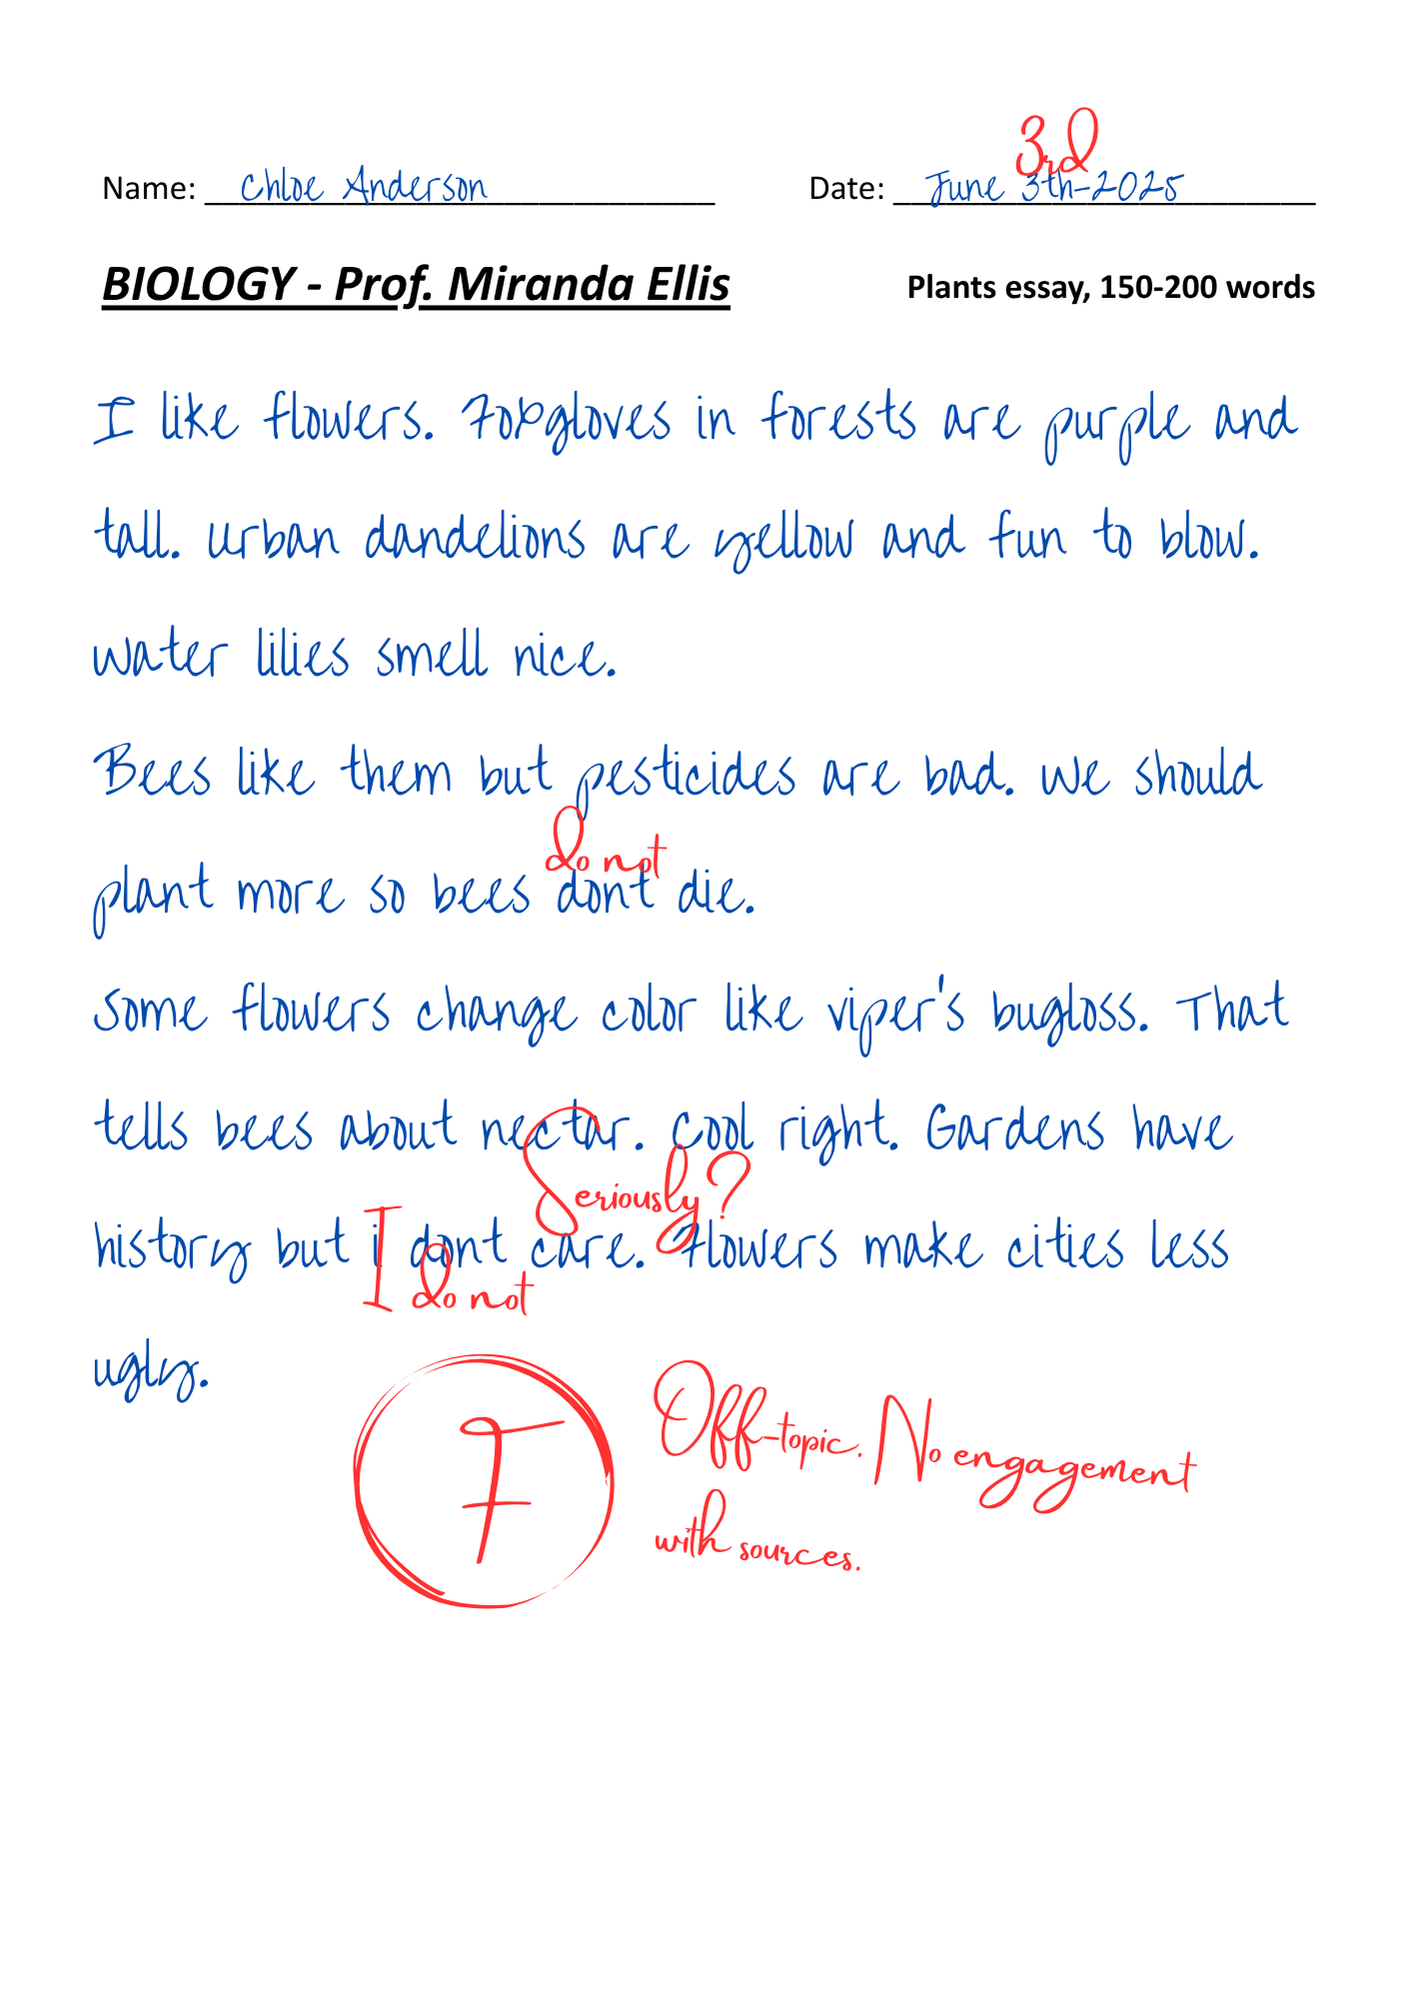 3rd
Name: Chloe Anderson Date: June 3th-2025
BIOLOGY - Prof. Miranda Ellis Plants essay, 150-200 words
I like flowers. Foxgloves in forests are purple and
tall. Urban dandelions are yellow and fun to blow.
Water lilies smell nice.
Bees like them but pesticides are bad. We should
do not
plant more so bees dont die.
Some flowers change color like viper's bugloss. That
tells bees about nectar. Cool right. Gardens have
Seriously?
history but i dont care. Flowers make cities less
I do not
ugly.
F
Off-topic. No engagement
with sources.